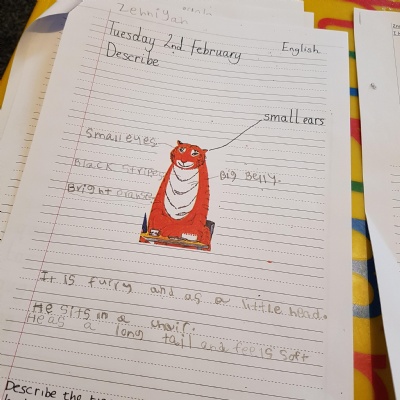 Zehniyah
Tuesday 2nd February
English
Describe
small ears
Small eyes
Black stripes
Big Belly.
Bright orange
It is furry and as a little head.
He sits in a chair.
Heas a long tail and feels soft
Describe the